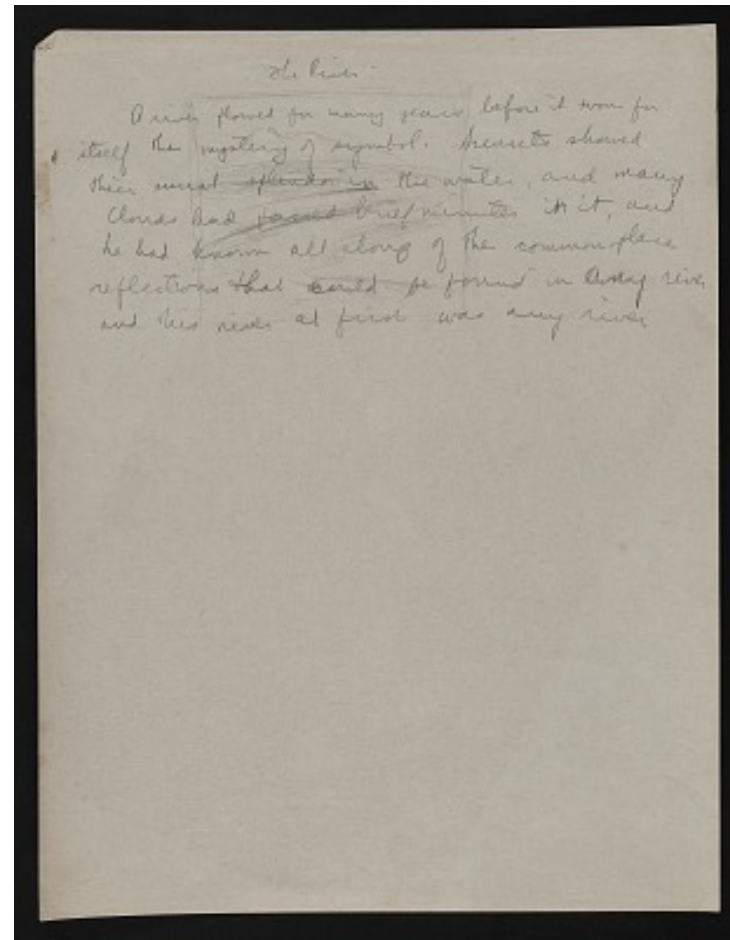 The River -
A river flowed for many years before it won for
itself the mystery of symbol. Sunsets showed
their usual splendor in the water, and many
clouds had passed brief minutes in it, and
he had known all along of the commonplace
reflections that could be found in any river
and this river at first was any river